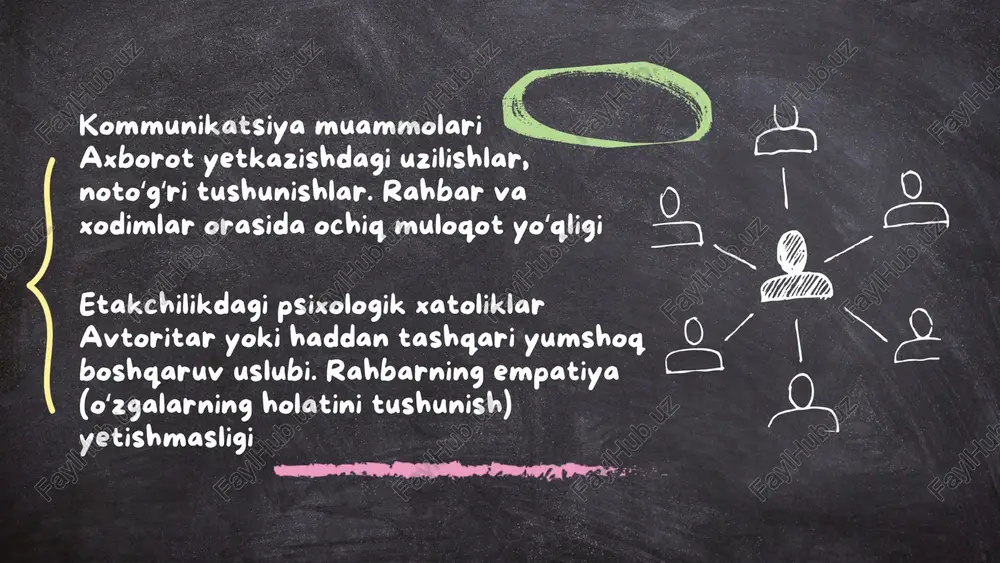 Kommunikatsiya muammolari
Axborot yetkazishdagi uzilishlar,
noto‘g‘ri tushunishlar. Rahbar va
xodimlar orasida ochiq muloqot yo‘qligi
Etakchilikdagi psixologik xatoliklar
Avtoritar yoki haddan tashqari yumshoq
boshqaruv uslubi. Rahbarning empatiya
(o‘zgalarning holatini tushunish)
yetishmasligi
FaylHub.uz